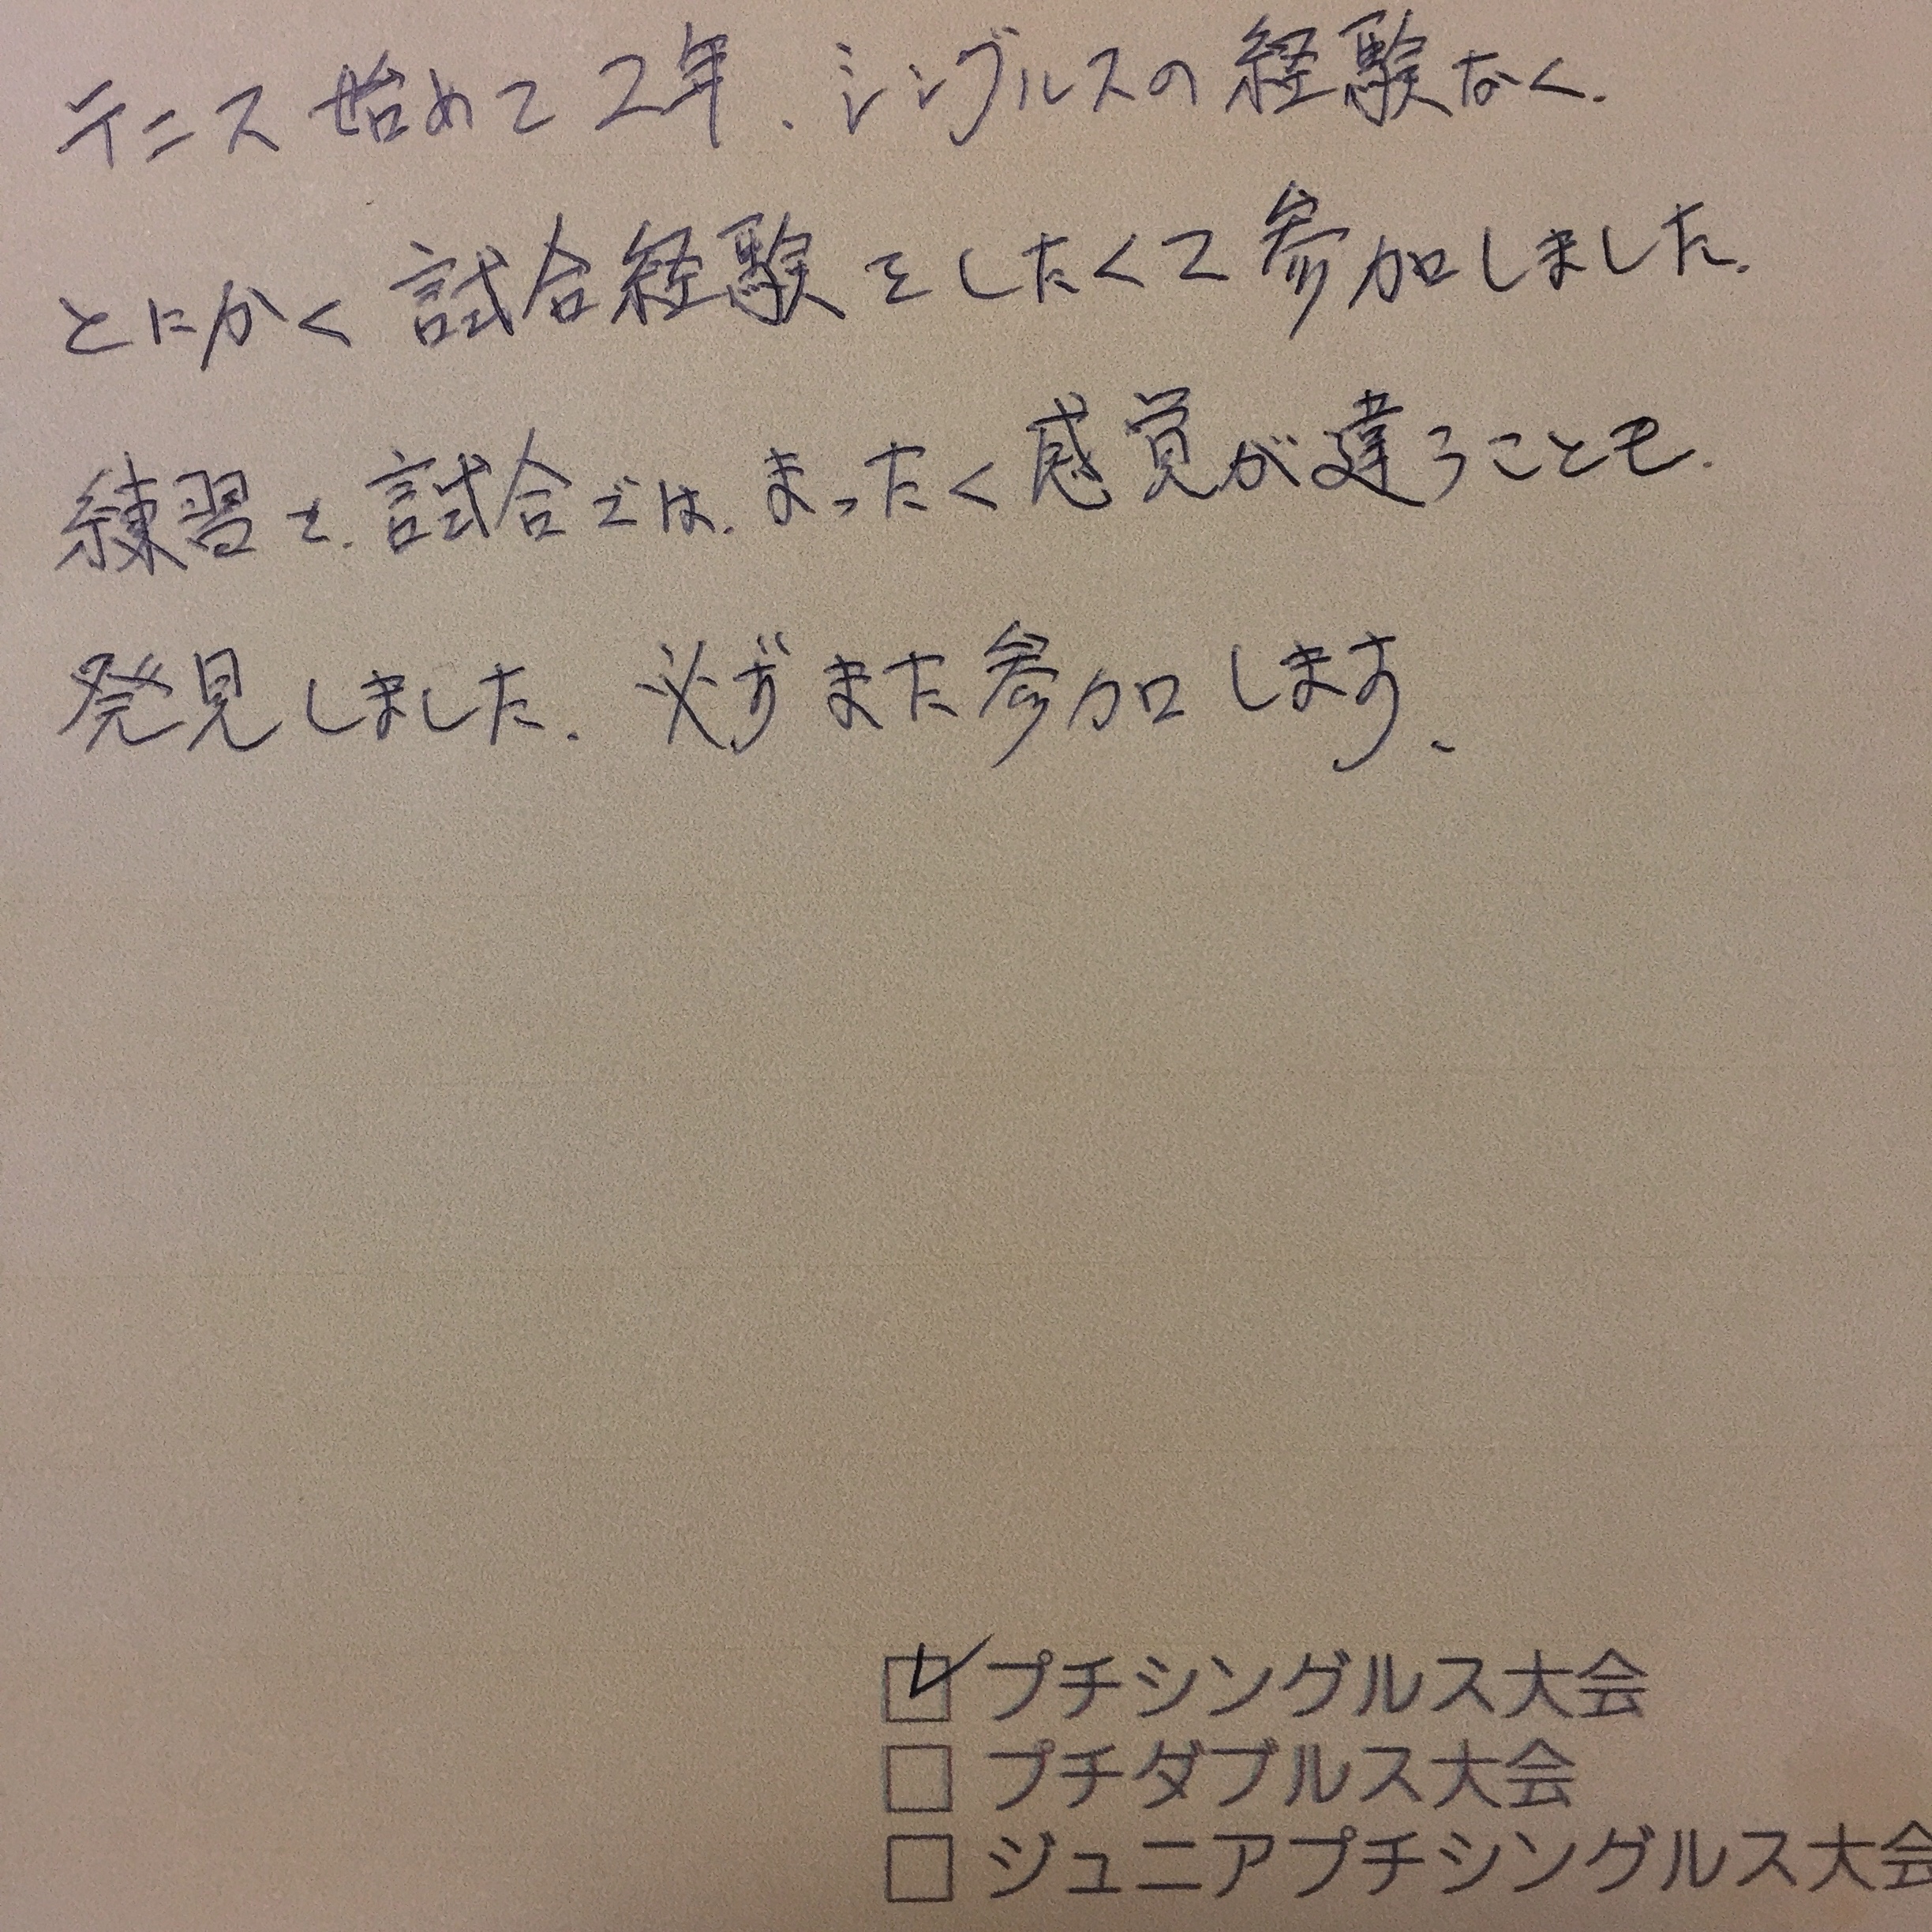 テニス始めて2年、シングルスの経験なく、
とにかく試合経験をしたくて参加しました。
練習と、試合では、まったく感覚が違うことを、
発見しました。必ずまた参加します、
☑プチシングルス大会
□プチダブルス大会
□ジュニアプチシングルス大会